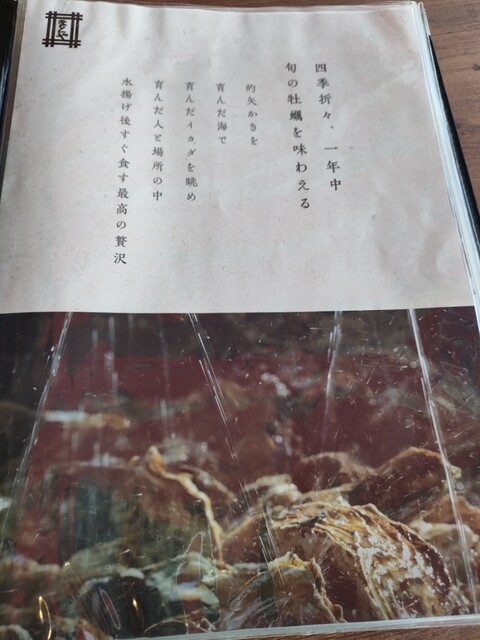 四季折々、一年中
旬の牡蠣を味わえる
的矢かきを
育んだ海で
育んだイカダを眺め
育んだ人と場所の中
水揚げ後すぐ食す最高の贅沢